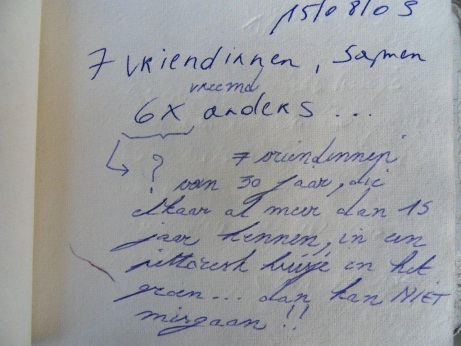 15/08/03
7 vriendinnen, samen
vreemd
6x anders ...
? 7 vriendinnen
van 30 jaar, die
elkaar al meer dan 15
jaar kennen, in een
pittoresk huisje in het
groen... dan kan NIET
misgaan !!